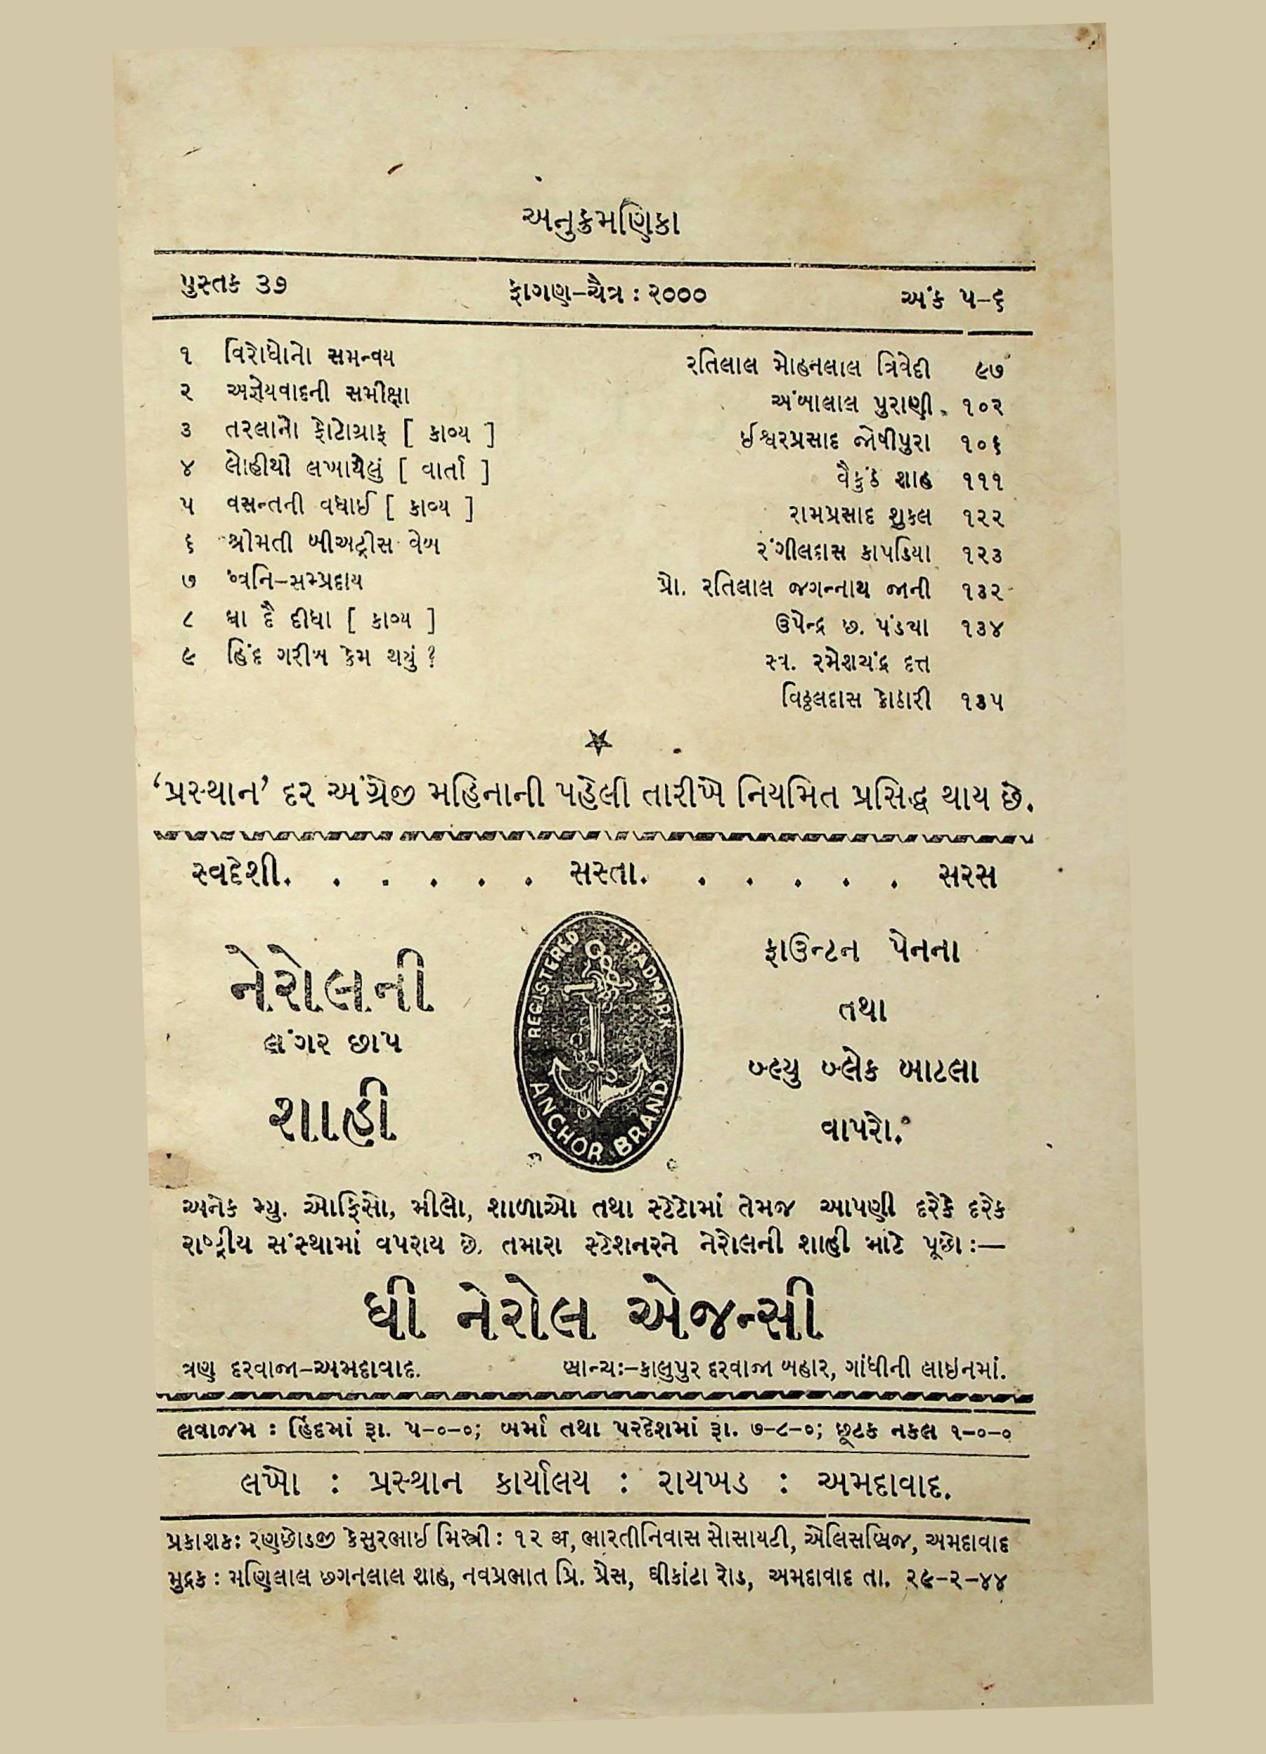 અનુક્રમણિકા
પુસ્તક ૩૭ ફાગણ-ચૈત્ર : ૨૦૦૦ અંક ૫-૬
૧ વિરોધોનો સમન્વય રતિલાલ મોહનલાલ ત્રિવેદી ૯૭
૨ અજ્ઞેયવાદની સમીક્ષા અંબાલાલ પુરાણી ૧૦૨
૩ તરલાનો ફોટોગ્રાફ [ કાવ્ય ] ઈશ્વરપ્રસાદ જોષીપુરા ૧૦૬
૪ લોહીથી લખાયેલું [ વાર્તા ] વૈકુંઠ શાહ ૧૧૧
૫ વસન્તની વધાઈ [ કાવ્ય ] રામપ્રસાદ શુકલ ૧૨૨
૬ શ્રીમતી બીઅટ્રીસ વેબ રંગીલદાસ કાપડિયા ૧૨૩
૭ ધ્વનિ-સમ્પ્રદાય પ્રો. રતિલાલ જગન્નાથ જાની ૧૩૨
૮ ધા દૈ દીધા [ કાવ્ય ] ઉપેન્દ્ર છ. પંડયા ૧૩૪
૯ હિંદ ગરીબ કેમ થયું ? સ્વ. રમેશચંદ્ર દત્ત
વિઠ્ઠલદાસ કોઠારી ૧૩૫
‘પ્રસ્થાન’ દર અંગ્રેજી મહિનાની પહેલી તારીખે નિયમિત પ્રસિદ્ધ થાય છે.
સ્વદેશી. . . . . . સસ્તા. . . . . . સરસ
નેરોલની
લંગર છાપ
શાહી
REGISTERED TRADMARK
ANCHOR BRAND
ફાઉન્ટન પેનના
તથા
બ્લ્યુ બ્લેક બાટલા
વાપરો.
અનેક મ્યુ. ઓફિસો, મીલો, શાળાઓ તથા સ્ટેટોમાં તેમજ આપણી દરેકે દરેક
રાષ્ટ્રીય સંસ્થામાં વપરાય છે. તમારા સ્ટેશનરને નેરોલની શાહી માટે પૂછો :—
ધી નેરોલ એજન્સી
ત્રણ દરવાજા-અમદાવાદ. બ્રાન્ચઃ-કાલુપુર દરવાજા બહાર, ગાંધીની લાઇનમાં.
લવાજમ : હિંદમાં રૂા. ૫-૦-૦; બર્મા તથા પરદેશમાં રૂા. ૭-૮-૦; છૂટક નકલ ૧-૦-૦
લખો : પ્રસ્થાન કાર્યાલય : રાયખડ : અમદાવાદ.
પ્રકાશક: રણછોડજી કેસુરભાઈ મિસ્ત્રી : ૧૨ અ, ભારતીનિવાસ સોસાયટી, એલિસબ્રિજ, અમદાવાદ
મુદ્રક : મણિલાલ છગનલાલ શાહ, નવપ્રભાત પ્રિ. પ્રેસ, ઘીકાંટા રોડ, અમદાવાદ તા. ૨૯-૨-૪૪